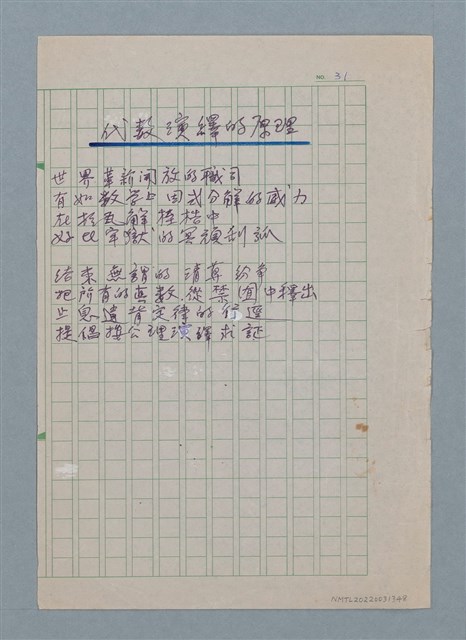 NO. 31
代数演繹的原理
世界革新開放的職司
有如数学上因式分解的威力
在於瓦解桎梏中
好比牢獄的冥頑利誘
結束無謂的 紛爭
把所有的真数從禁固中釋出
止息違背定律的行逕
提倡按公理演繹求証
NMTL20220031348